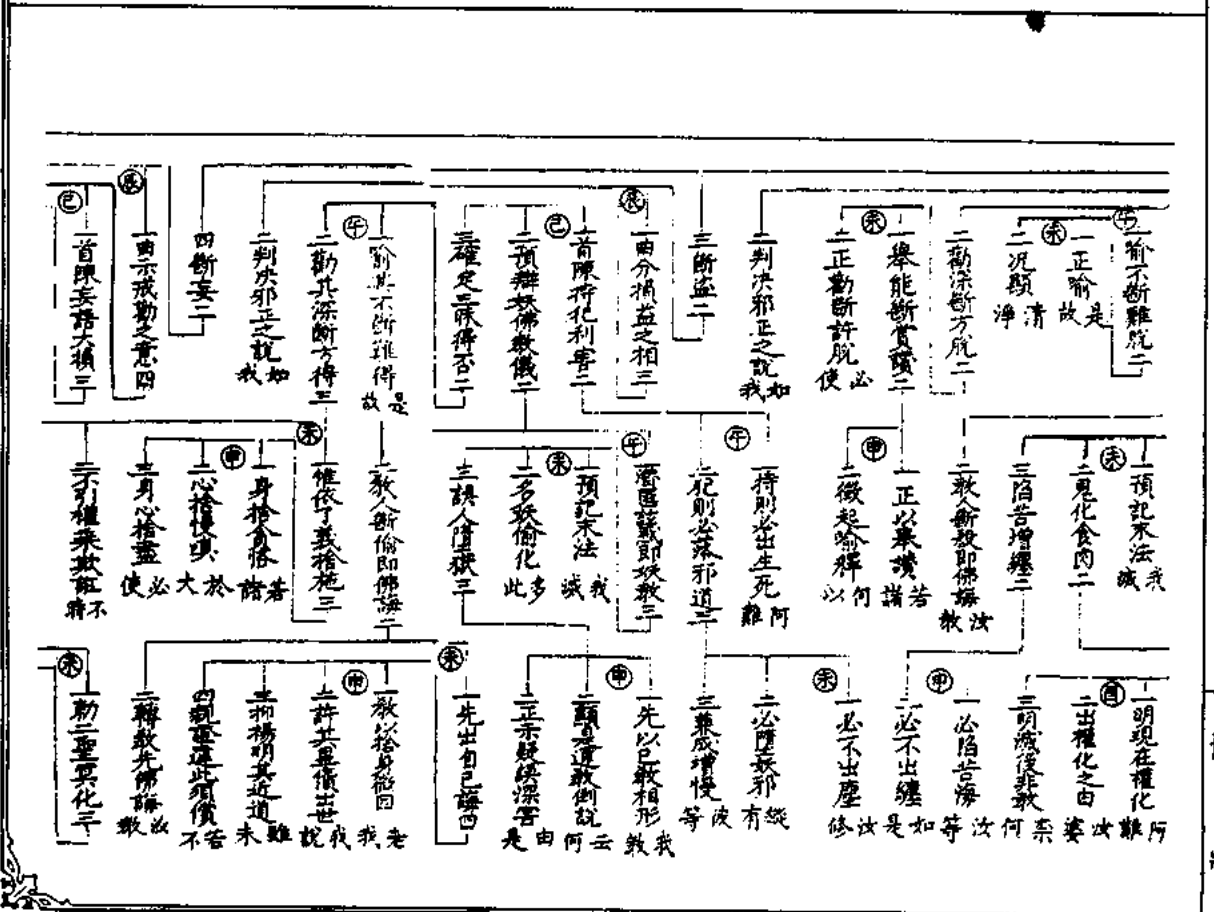 午
一喻不斷難脫二
未
一正喻
是故
二況顯
清淨
二勸深斷方脫二
未
一舉能斷賞讚二
二正勸斷許脫
必使
二判決邪正之說
如我
三斷盜二
辰
一曲分損益之相三
己
一首陳持犯利害二
二預辯妖佛教儀二
三確定三昧得否二
午
一喻其不斷難得
是故
二勸其深斷方得三
二判決邪正之說
如我
四斷妄二
辰
一曲示戒勸之意四
己
一首陳妄語大損三
未
一預記末法
我滅
二鬼化食肉二
三陷苦增纏二
二教人斷殺即佛誨
汝教
申
一正以舉讚
若諸
二徵起喻釋
何以
午
一持則必出生死
阿難
二犯則必落邪道三
午
未
一預記末法
我滅
二名妖偷化
多此
三誤人墮獄三
二教人斷偷即佛誨二
未
一惟依了義捨施三
申
一身捨貪悋
若諸
二心捨慢嗔
於大
三身心捨盡
必使
二不引權乘欺誑
不將
酉
一明現在權化
阿難
二出權化之由
汝婆
三明滅後非教
柰何
申
一必陷苦海
汝等
二必不出纏
如是
未
一必不出塵
汝修
二必墮妖邪
縱有
三兼成增慢
彼等
申
一先以已教相形
我教
二顯異遺教倒說
云何
三正示疑誤深害
由是
未
一先出自己誨四
申
一教以捨身微因
若我
二許其畢償出世
我說
三抑揚明其近道
雖未
若不
二轉教先佛誨
汝教
未
一勅二聖冥化三